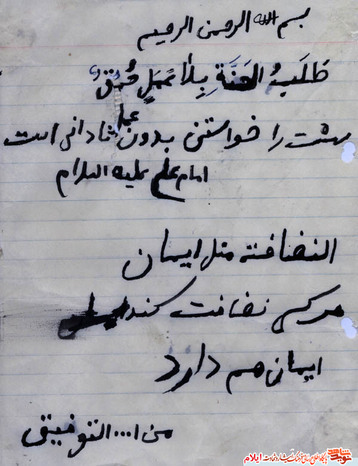 بسم الله الرحمن الرحیم
طَلَبُ الجَنَّة بِلا عَمَلٍ حُمقٌ
بهشت را خواستن بدون عمل نادانی است
امام علی علیه السلام
النضافته مثل ایمان
هرکس نضافت کند
ایمان هم دارد
من ا... التوفیق
ایلام